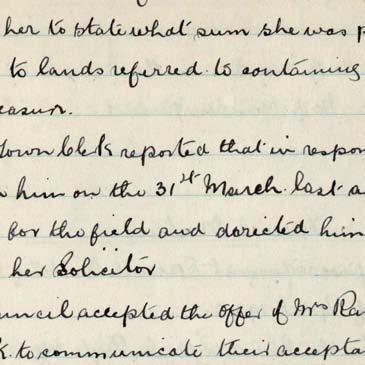 her to state what sum she was p
to lands referred to containing
easure.
Town Clerk reported that in respon
him on the 31st March last a
for the field and directed him
her Solicitor
uncil accepted the offer of Mrs Ra
K. to communicate their accepta